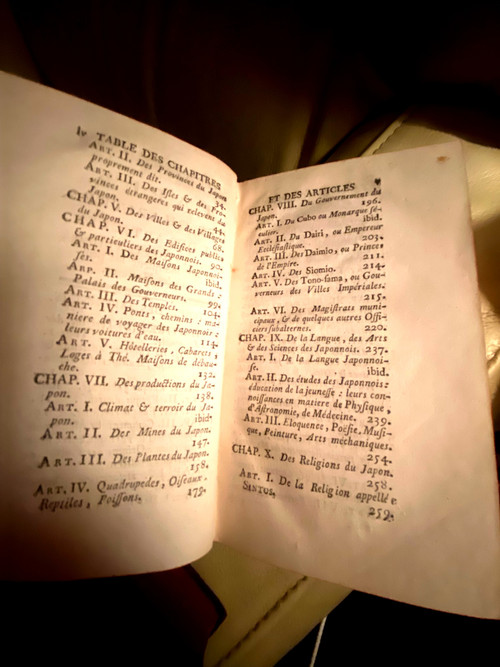 lv TABLE DES CHAPITRES
ART. II. Des Provinces du Japon
proprement dit. 34.
ART. III. Des Isles & des Pro-
vinces étrangeres qui relevent du
Japon. 44.
CHAP. V. Des Villes & des Villages
du Japon. 68.
CHAP. VI. Des Edifices publics
& particuliers des Japonnois. 90.
ART. I. Des Maisons Japonnoi-
ses. ibid.
ARP. II. Maisons des Grands :
Palais des Gouverneurs. 99.
ART. III. Des Temples. 104.
ART. IV. Ponts, chemins : ma-
niere de voyager des Japonnois :
leurs voitures d'eau. 114.
ART. V. Hôtelleries, Cabarets,
Loges à Thé. Maisons de débau-
che. 132.
CHAP. VII. Des productions du Ja-
pon. 138.
ART. I. Climat & terroir du Ja-
pon. ibid.
ART. II. Des Mines du Japon.
147.
ART. III. Des Plantes du Japon.
158.
ART. IV. Quadrupedes, Oiseaux
Reptiles, Poissons. 179.
ET DES ARTICLES v
CHAP. VIII. Du Gouvernement du
Japon. 196.
ART. I. Du Cubo ou Monarque sé-
culier. ibid.
ART. II. Du Dairi, ou Empereur
Ecclésiastique. 203.
ART. III. Des Daimio, ou Princes
de l'Empire. 211.
ART. IV. Des Siomio. 214.
ART. V. Des Tono-sama, ou Gou-
verneurs des Villes Impériales.
215.
ART. VI. Des Magistrats muni-
cipaux, & de quelques autres Offi-
ciers subalternes. 220.
CHAP. IX. De la Langue, des Arts
& des Sciences des Japonnois. 237.
ART. I. De la Langue Japonnoi-
se. ibid.
ART. II. Des études des Japonnois :
éducation de la jeunesse : leurs con-
noissances en matiere de Physique,
d'Astronomie, de Médecine. 239.
ART. III. Eloquence, Poësie. Musi-
que, Peinture, Arts méchaniques.
254.
CHAP. X. Des Religions du Japon.
258.
ART. I. De la Religion appellée
SINTOS. 259.